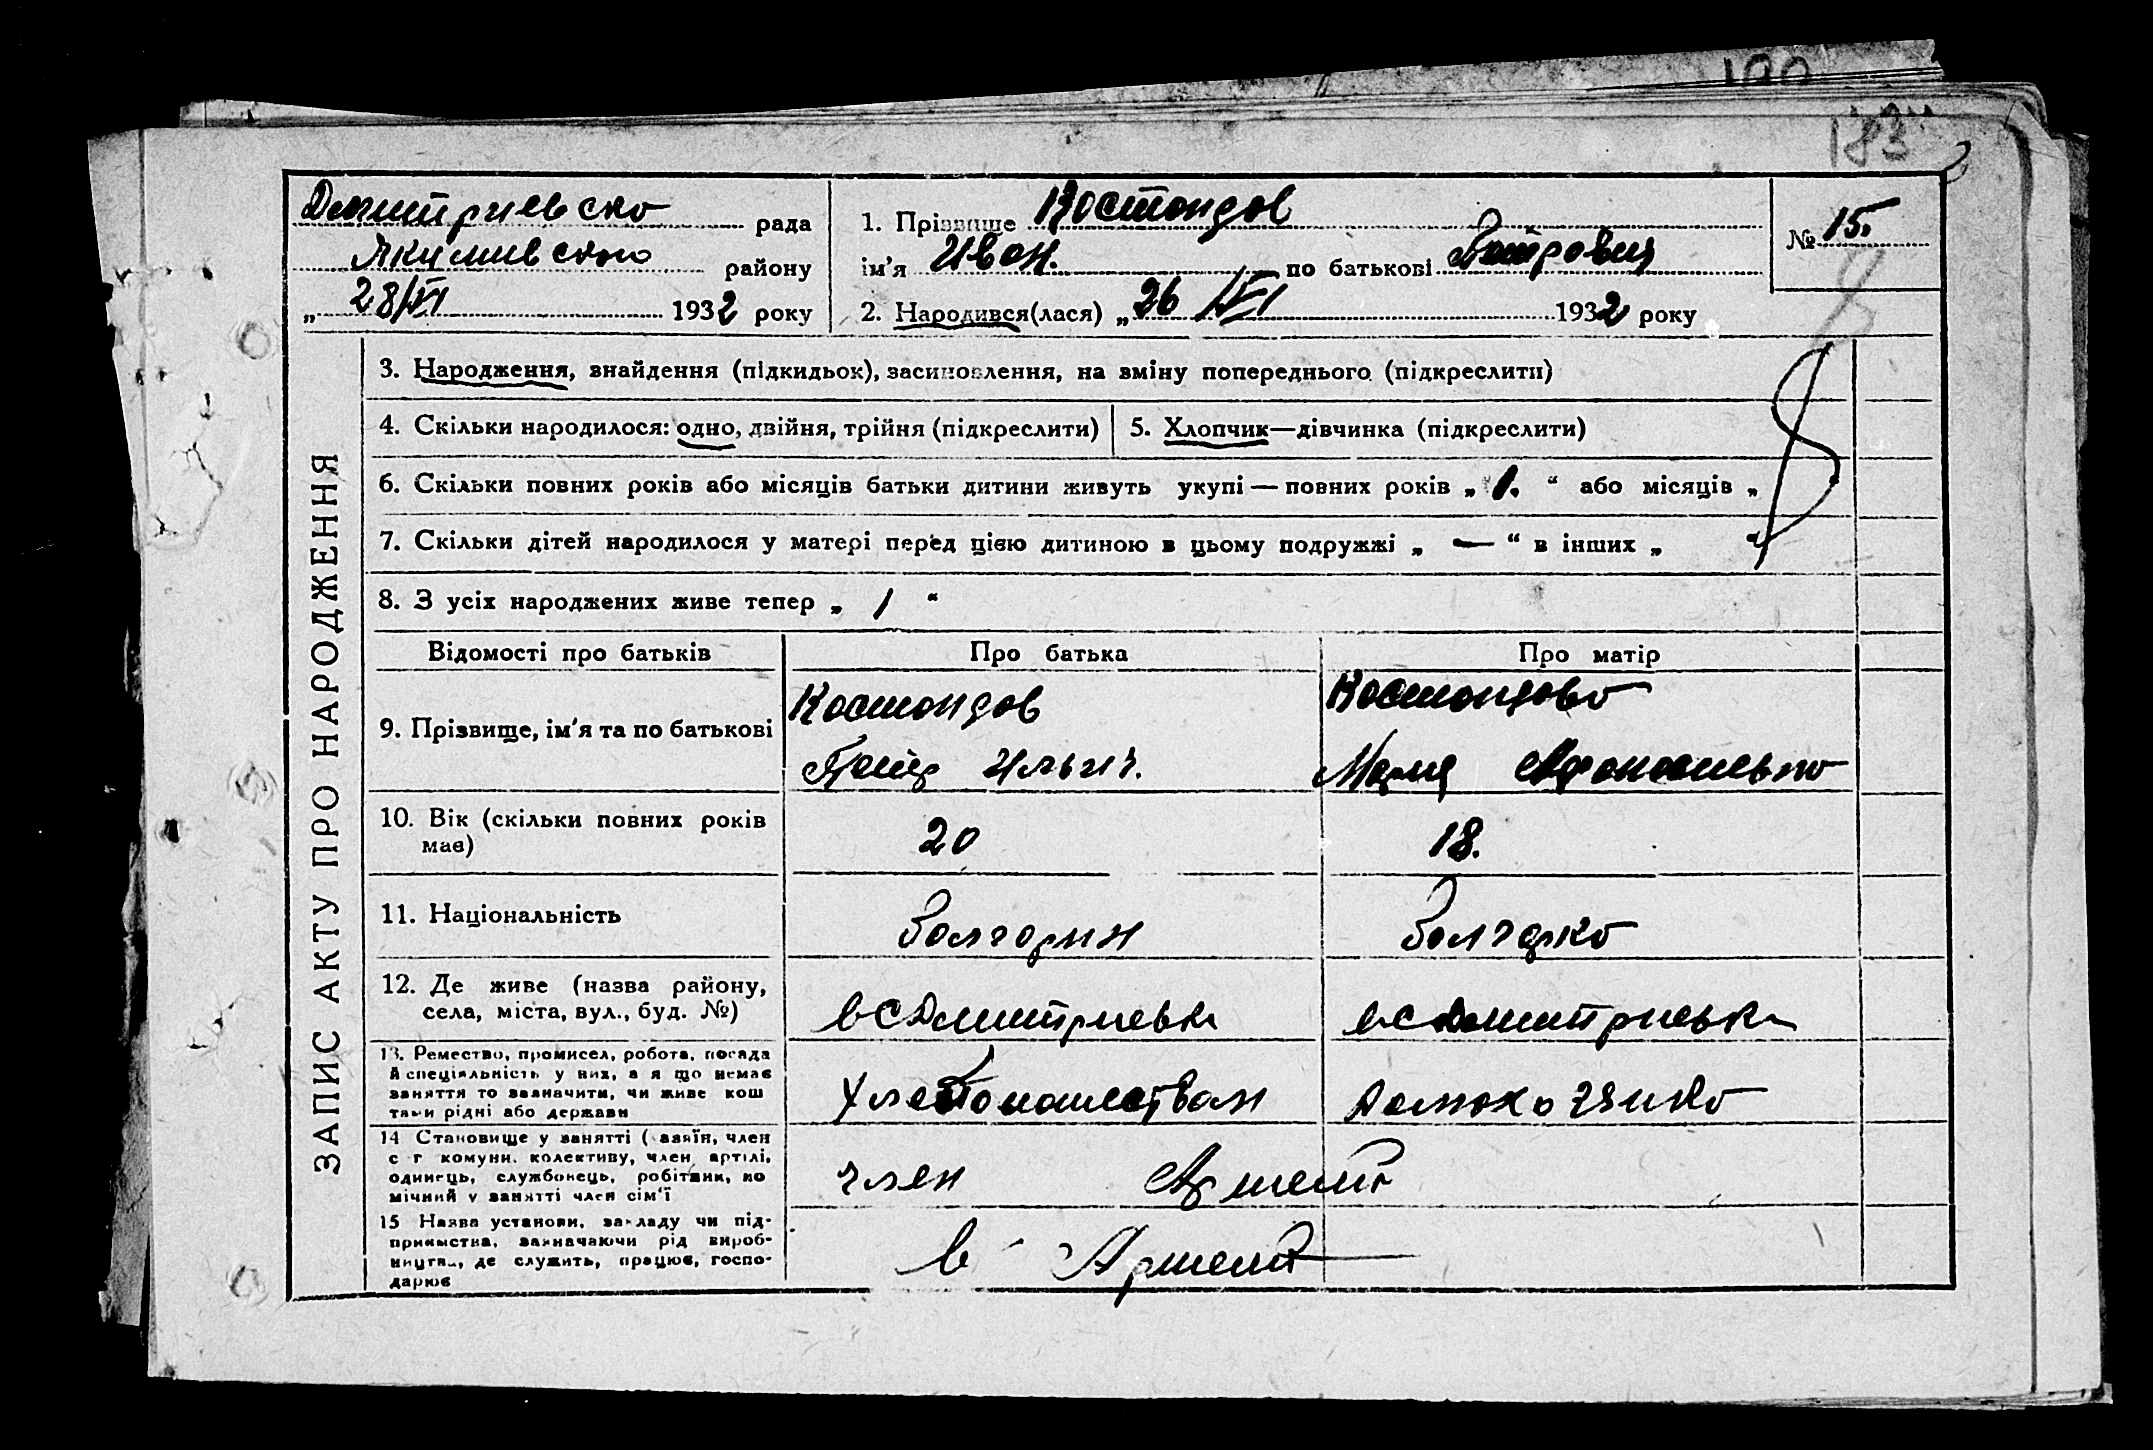 190
183
Дмитриевско рада
Якимивского району
„ 28/VI 1932 року
1. Прізвище Костондов
ім'я Иван. по батькові Петрович
2. Народився(лася) „ 26/VI 1932 року
№ 15.
ЗАПИС АКТУ ПРО НАРОДЖЕННЯ
3. Народження, знайдення (підкидьок), засиновлення, на вміну попереднього (підкреслити)
4. Скільки народилося: одно, двійня, трійня (підкреслити)
5. Хлопчик—дівчинка (підкреслити)
6. Скільки повних років або місяців батьки дитини живуть укупі — повних років „ 1. “ або місяців „
7. Скільки дітей народилося у матері перед цією дитиною в цьому подружжі „ — “ в інших „ “
8. З усіх народжених живе тепер „ 1 “
Відомості про батьків
Про батька
Про матір
9. Прізвище, ім'я та по батькові
Костондов
Петр Ильич.
Костондова
Мария Афонасьевно
10. Вік (скільки повних років
має)
20
18.
11. Національність
Болгорин
Болгарка
12. Де живе (назва району,
села, міста, вул., буд. №)
в с Дмитриевки
в с Дмитриевки
13. Ремество, промисел, робота, посада
й спеціяльність у них, а я що немає
заняття то зазначити, чи живе кош
тами рідні або держави
Домохозяйка
14 Становище у занятті (хазяїн, член
с г комуни. колективу, член артілі,
одинець, службовець, робітник, по
мічний у занятті член сім'ї
член Артели
15 Назва установи, закладу чи під-
приємства, зазначаючи рід вироб-
ництва, де служить, працює, госпо-
дарює
в Артели